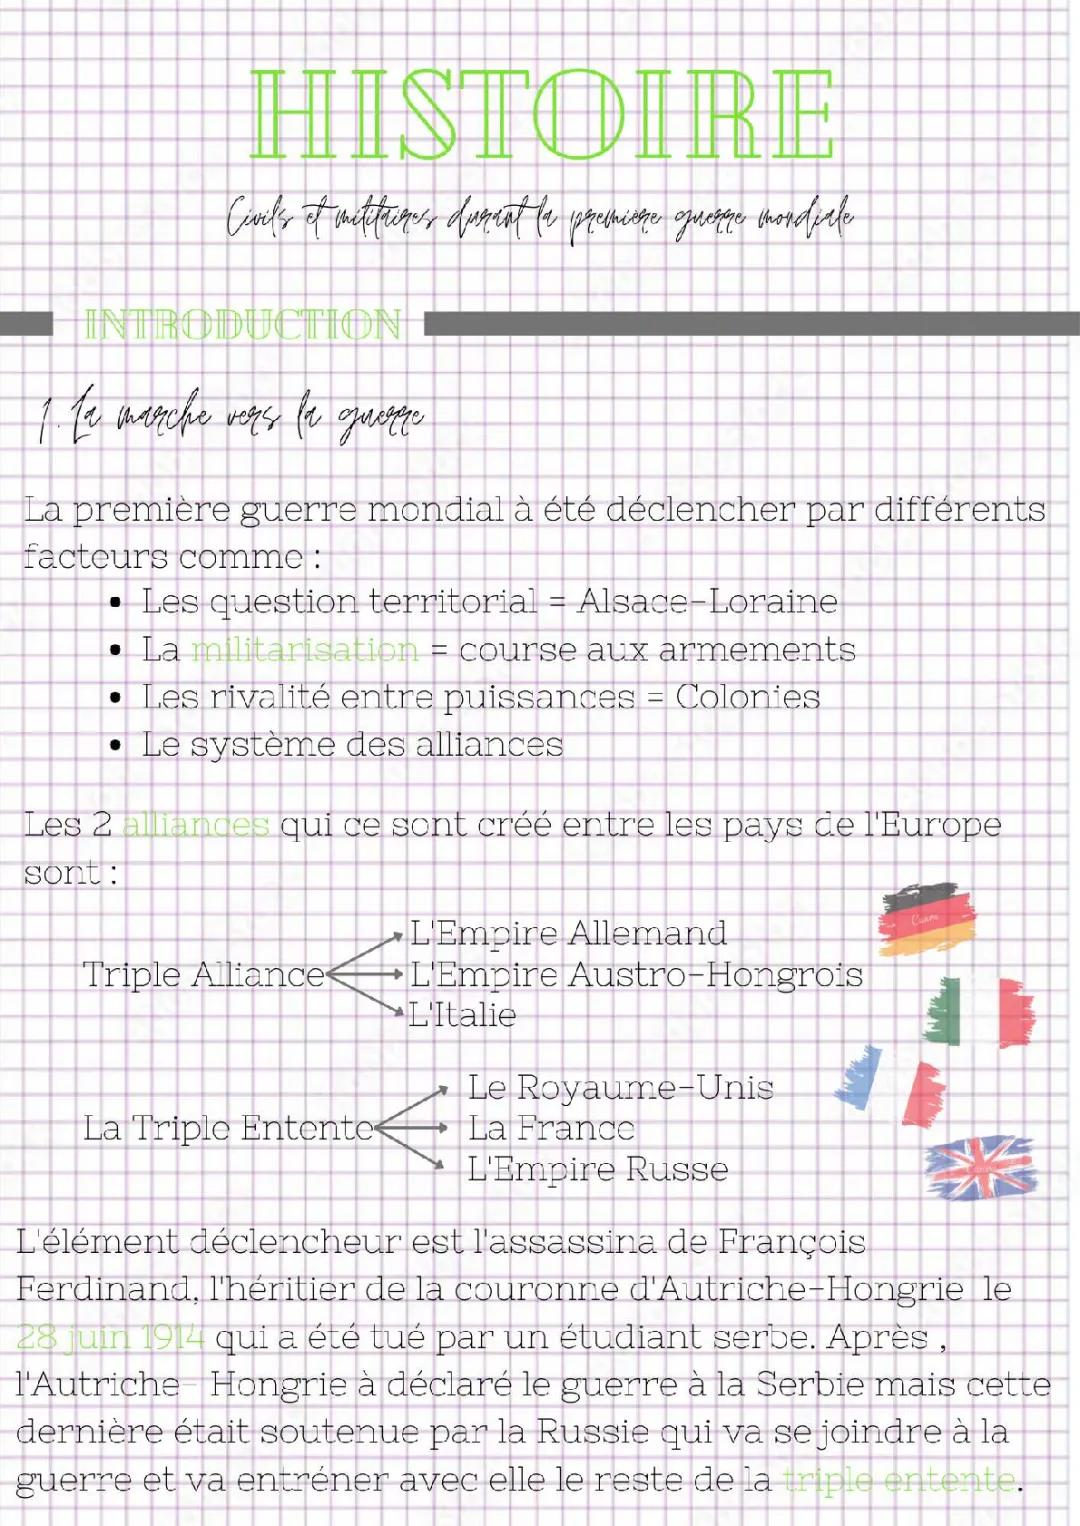 HISTOIRE
Civils et militaires durant la première guerre mondiale
INTRODUCTION
1. La marche vers la guerre
La première guerre mondial à été déclencher par différents
facteurs comme :
• Les question territorial = Alsace-Loraine
• La militarisation = course aux armements
• Les rivalité entre puissances = Colonies
• Le système des alliances
Les 2 alliances qui ce sont créé entre les pays de l'Europe
sont :
L'Empire Allemand
Triple Alliance L'Empire Austro-Hongrois
L'Italie
Le Royaume-Unis
La Triple Entente La France
L'Empire Russe
L'élément déclencheur est l'assassina de François
Ferdinand, l'héritier de la couronne d'Autriche-Hongrie le
28 juin 1914 qui a été tué par un étudiant serbe. Après ,
l'Autriche- Hongrie à déclaré le guerre à la Serbie mais cette
dernière était soutenue par la Russie qui va se joindre à la
guerre et va entréner avec elle le reste de la triple entente.
Canva